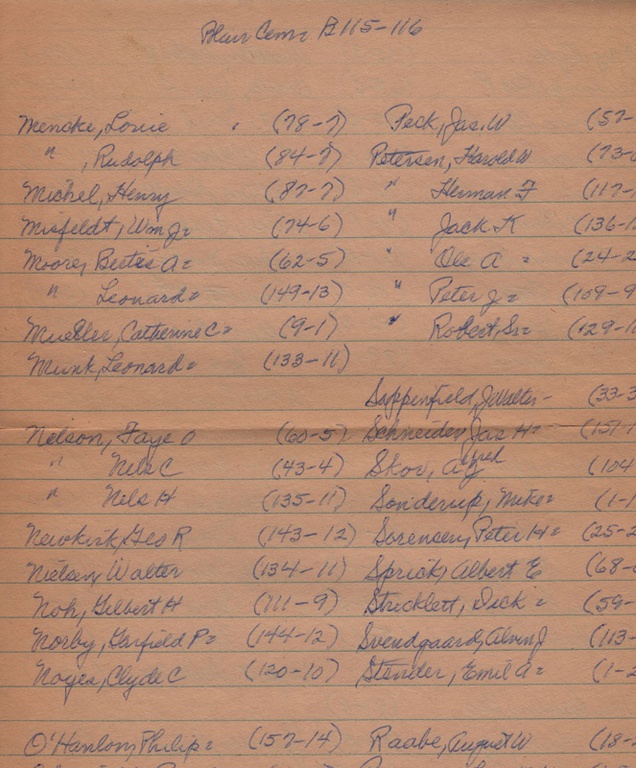 Blair Cem. B 115-116
Mencke, Louie (78-7) Peck, Jas. W (57-
" , Rudolph (84-7) Petersen, Harold W (73-
Michel, Henry (87-7) " Herman F (117-
Misfeldt, Wm J= (74-6) " Jack K (136-1
Moore, Bertie A= (62-5) " Ole A = (24-2
" Leonard= (149-13) " Peter J= (109-9
Mueller, Catherine C= (9-1) " Robert, Sr= (129-1
Munk, Leonard= (133-11)
Sappenfield, J Walter- (33-3
Nelson, Faye O (60-5) Schneider, Jas H= (151-1
" Nels C (43-4) Skov, Alfred (104
" Nels H (135-11) Sonderup, Mike= (1-1
Newkirk, Geo R (143-12) Sorensen, Peter H= (25-2
Nielsen, Walter (134-11) Sprick, Albert E (68-
Noh, Gilbert H (111-9) Stricklett, Dick = (59-
Norby, Garfield P= (144-12) Svendgaard, Alvin J (113-
Noyes, Clyde C (120-10) Stender, Emil A= (1-2
O'Hanlon, Philip= (157-14) Raabe, August W (18-